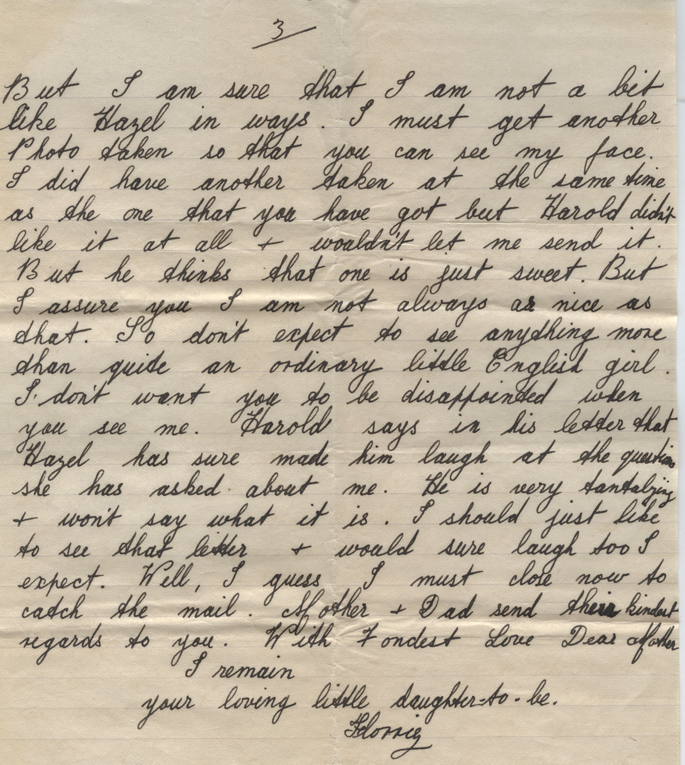 3
But I am sure that I am not a bit
like Hazel in ways. I must get another
Photo taken so that you can see my face.
I did have another taken at the same time
as the one that you have got but Harold didn't
like it at all + wouldn't let me send it.
But he thinks that one is just sweet. But
I assure you I am not always as nice as
that. So don't expect to see anything more
than quite an ordinary little English girl.
I don't want you to be disappointed when
you see me. Harold says in his letter that
Hazel has sure made him laugh at the questions
she has asked about me. He is very tantalizing
+ won't say what it is. I should just like
to see that letter + would sure laugh too I
expect. Well, I guess I must close now to
catch the mail. Mother + Dad send their kindest
regards to you. With Fondest Love Dear Mother
I remain
your loving little daughter-to-be.
Florrie